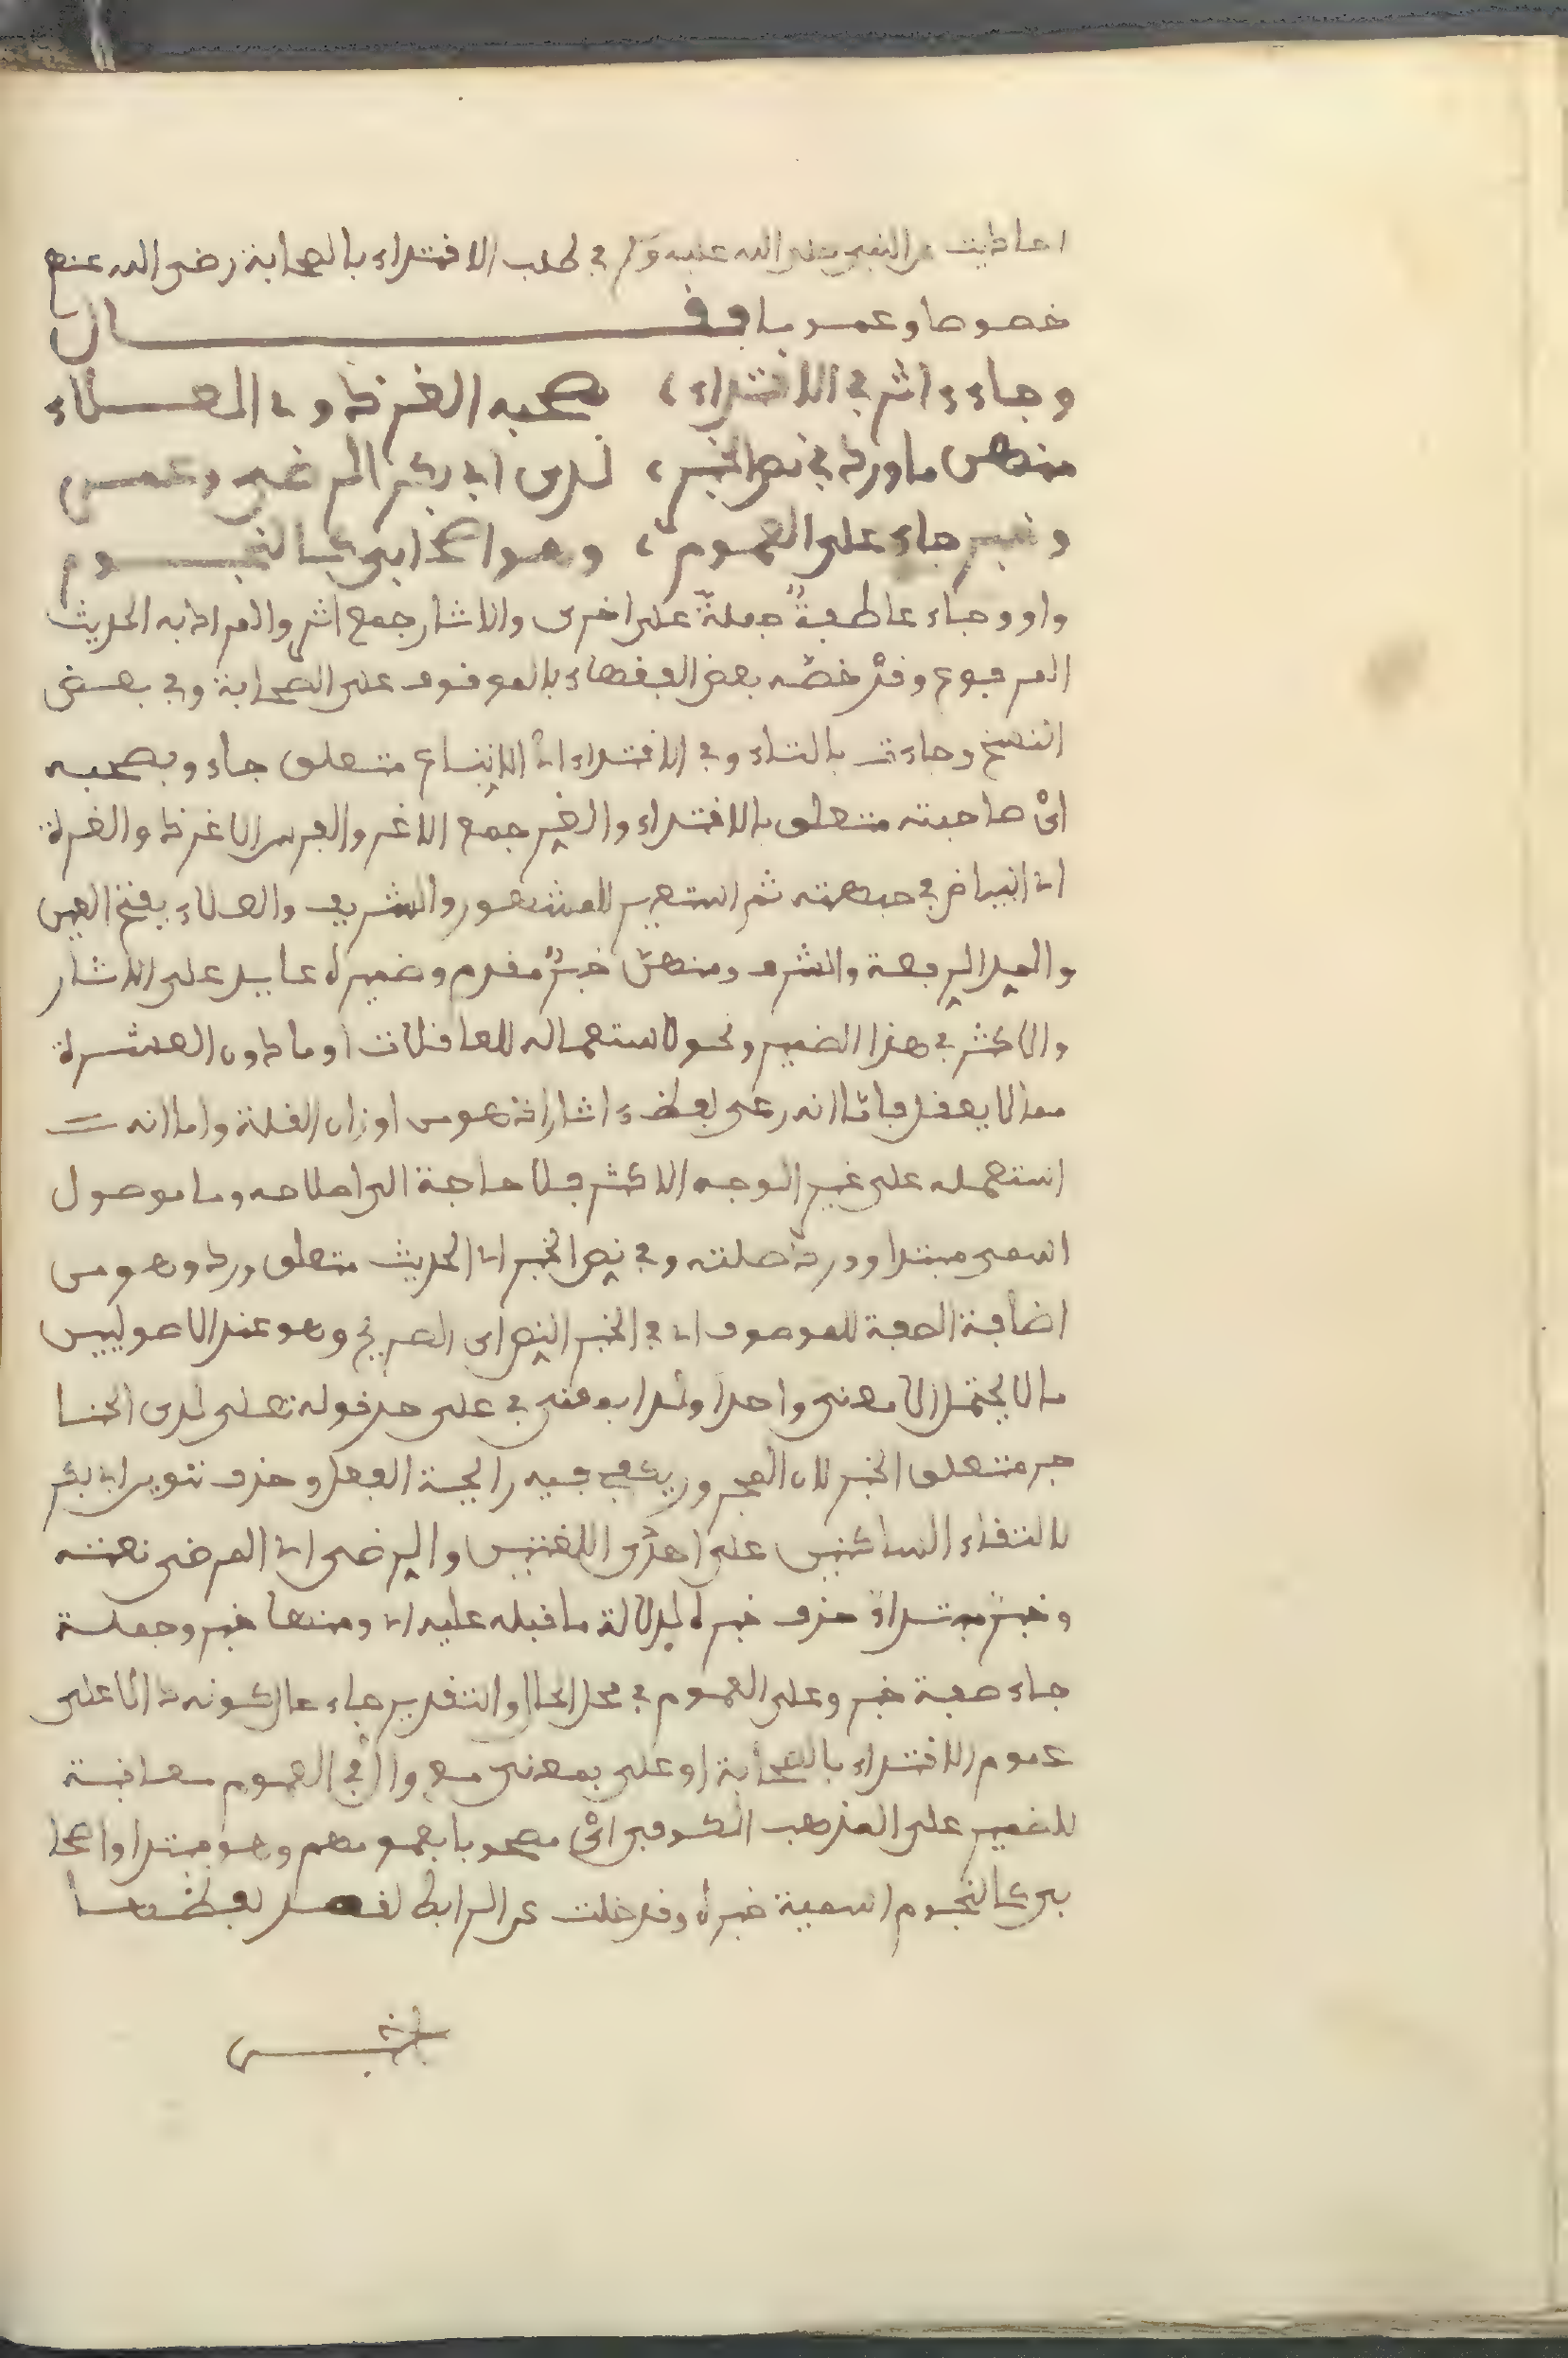 احاديث عن النبي صلى الله عليه وسلم في طلب الاقتداء بالصحابة رضي الله عنهم
خصوصا وعموما فقال
وجاء ءاثر في الاقتداء، بصحبه الغر ذوي العلاء
منهن ما ورد في نص الخبر، لدى ابي بكر الرضي وعمر
وخبر جاء على العموم، وهو اصحابي كالنجوم
واو وجاء عاطفةٌ جملةً على اخرى والاثار جمع اثر والمراد به الحديث
المرفوع وقد خصّه بعض الفقهاء بالموقوف على الصحابة وفي بعض
النسخ وجاءت بالتاء وفي الاقتداء اي الاتباع متعلق جاء وبصحبه
اي صاحبته متعلق بالاقتداء والغر جمع الاغر والفرس الاغر ذو الغرة
اي البياض في جبهته ثم استعير للمشهور والشريف والعلاء بفتح العين
والمد الرفعة والشرف ومنهن خبرٌ مقدم وضميره عايد على الاثار
والاكثر في هذا الضمير ونحوه استعماله للعاقلات او ما دون العشرة
مما لا يعقل فاما انه رعى لفظ ءاثار اذ هو من اوزان القلة واما انه
استعمله على غير الوجه الاكثر فلا حاجة الى اصلاحه وما موصول
اسمي مبتدا وورد صلته وفي نص الخبر اي الحديث متعلق ورد وهو من
اضافة الصفة للموصوف اي في الخبر النص اي الصريح وهو عند الاصوليين
ما لا يحتمل الا معنى واحدا ولدا بمعنى في على حد قوله تعلى لدى الحنا
جر متعلق الخبر لان المجرور يكفي فيه رايحة الفعل وحذف تنوين ابي بكر
لالتقاء الساكنين على احدى اللغتين والرضي اي المرضي نعته
وخبرٌ مبتدأ حذف خبره لدلالة ما قبله عليه اي ومنها خبر وجملة
جاء صفة خبر وعلى العموم في محل الحال والتقدير جاء حال كونه دالا على
عموم الاقتداء بالصحابة او على بمعنى مع وال في العموم معاقبة
للضمير على المذهب الكوفي اي مصحوبا بعمومهم وهو مبتدا واصحا
بي كالنجوم اسمية خبره وقد خلت عن الرابط لقصد لفظها